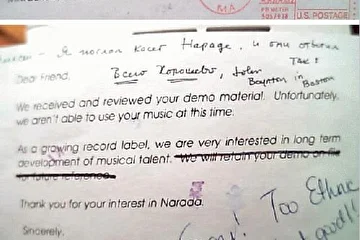 MA
U.S. POSTAGE
Я послал Косит Нараде, и они ответили
так:
Dear Friend,
Всего Хорошего, John
Boynton in
Boston
We received and reviewed your demo material. Unfortunately,
we aren't able to use your music at this time.
As a growing record label, we are very interested in long term
development of musical talent. We will retain your demo on file
for future reference.
Thank you for your interest in Narada.
Too Ethnic
Sincerely,
good!!